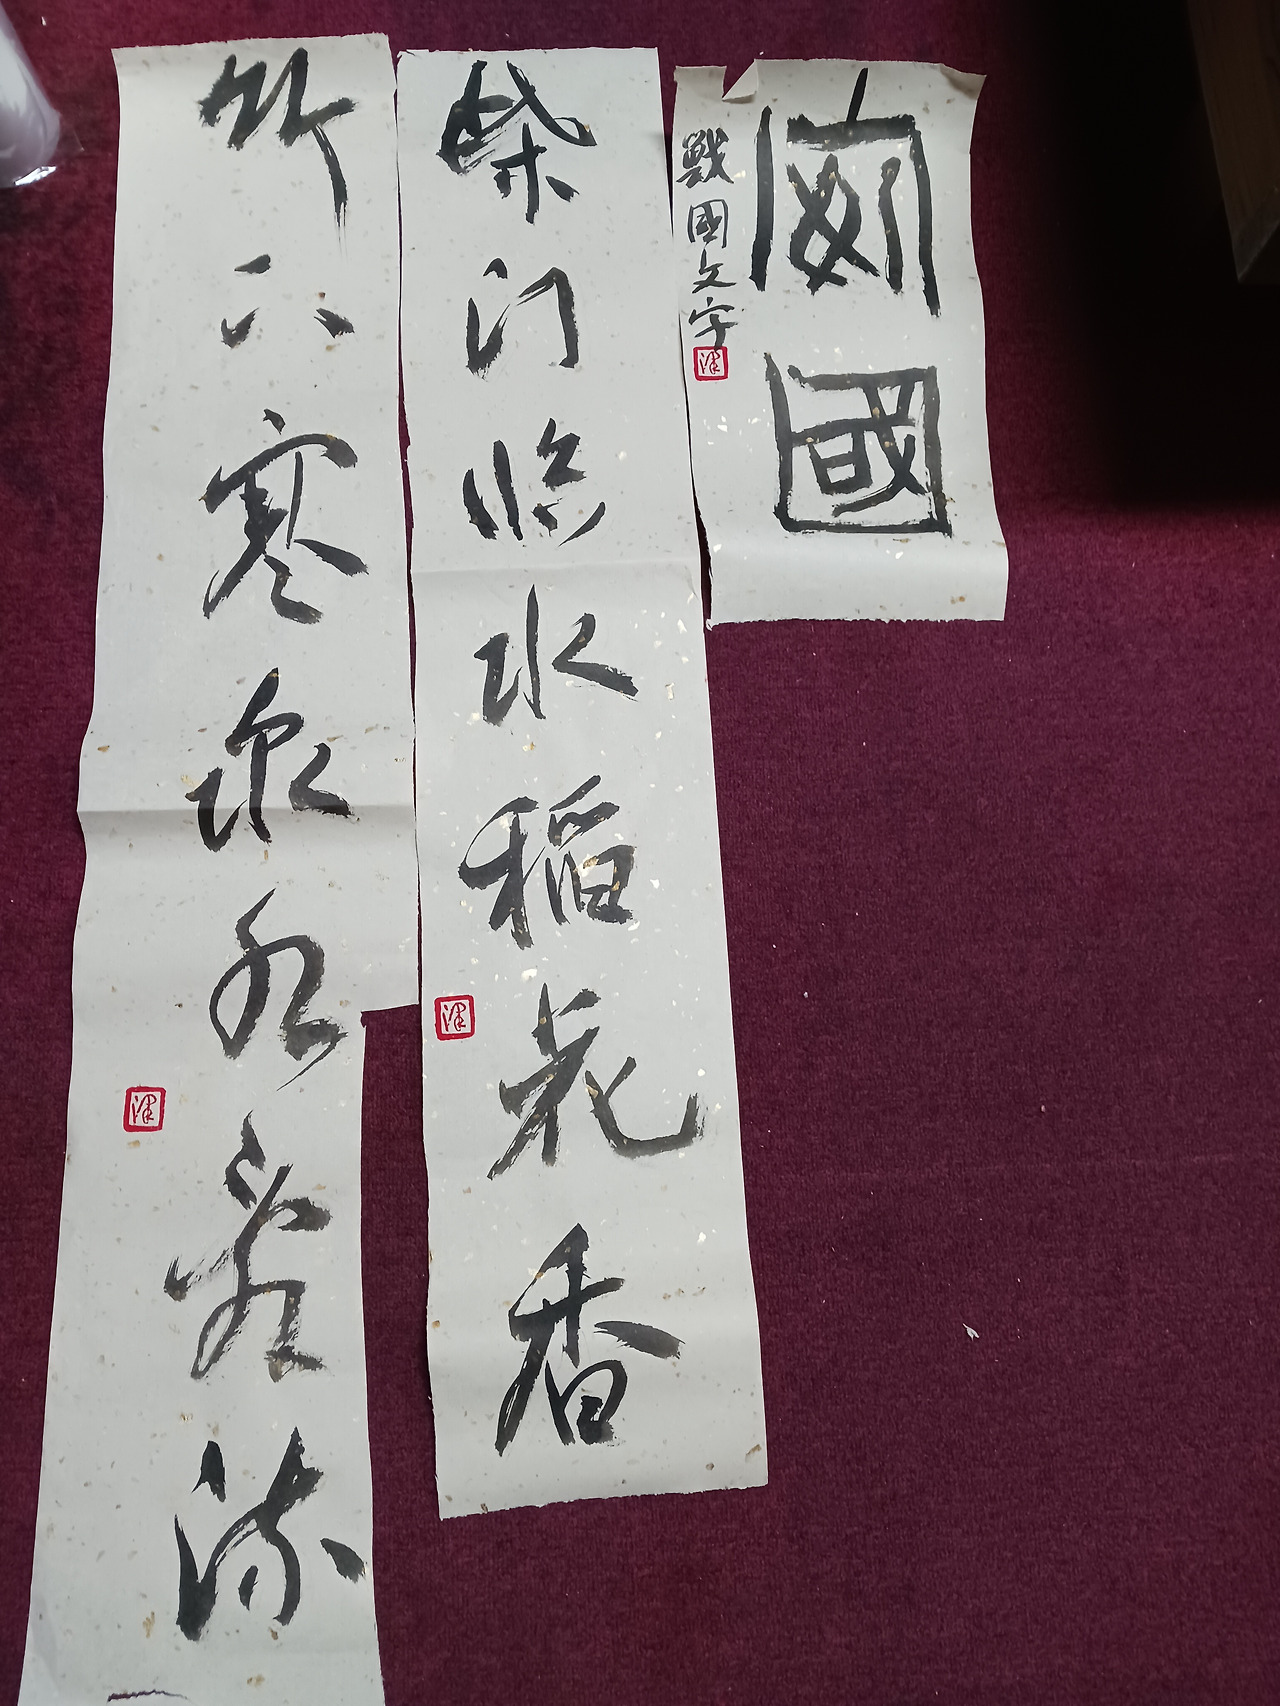 安國
戰國文字
津
柴门临水稻花香
津
竹寒泉流
津